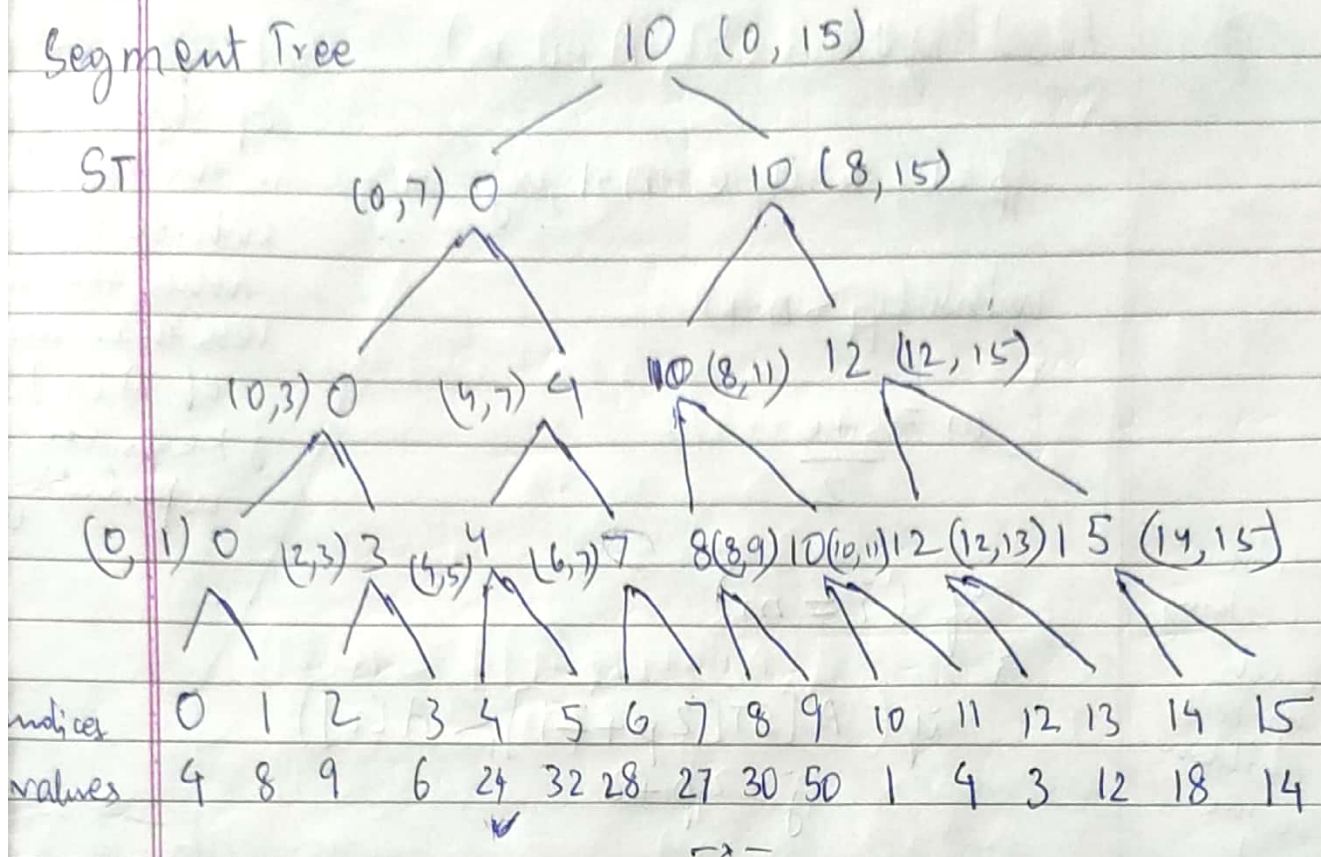 Segment Tree 10 (0, 15)
ST (0,7) 0 10 (8,15)
(0,3) 0 (4,7) 4 10 (8,11) 12 (12, 15)
(0, 1) 0 (2,3) 3 (4,5) 4 (6,7) 7 8(8,9) 10(10,11) 12 (12,13) 15 (14, 15)
ndices 0 1 2 3 4 5 6 7 8 9 10 11 12 13 14 15
values 4 8 9 6 24 32 28 27 30 50 1 4 3 12 18 14